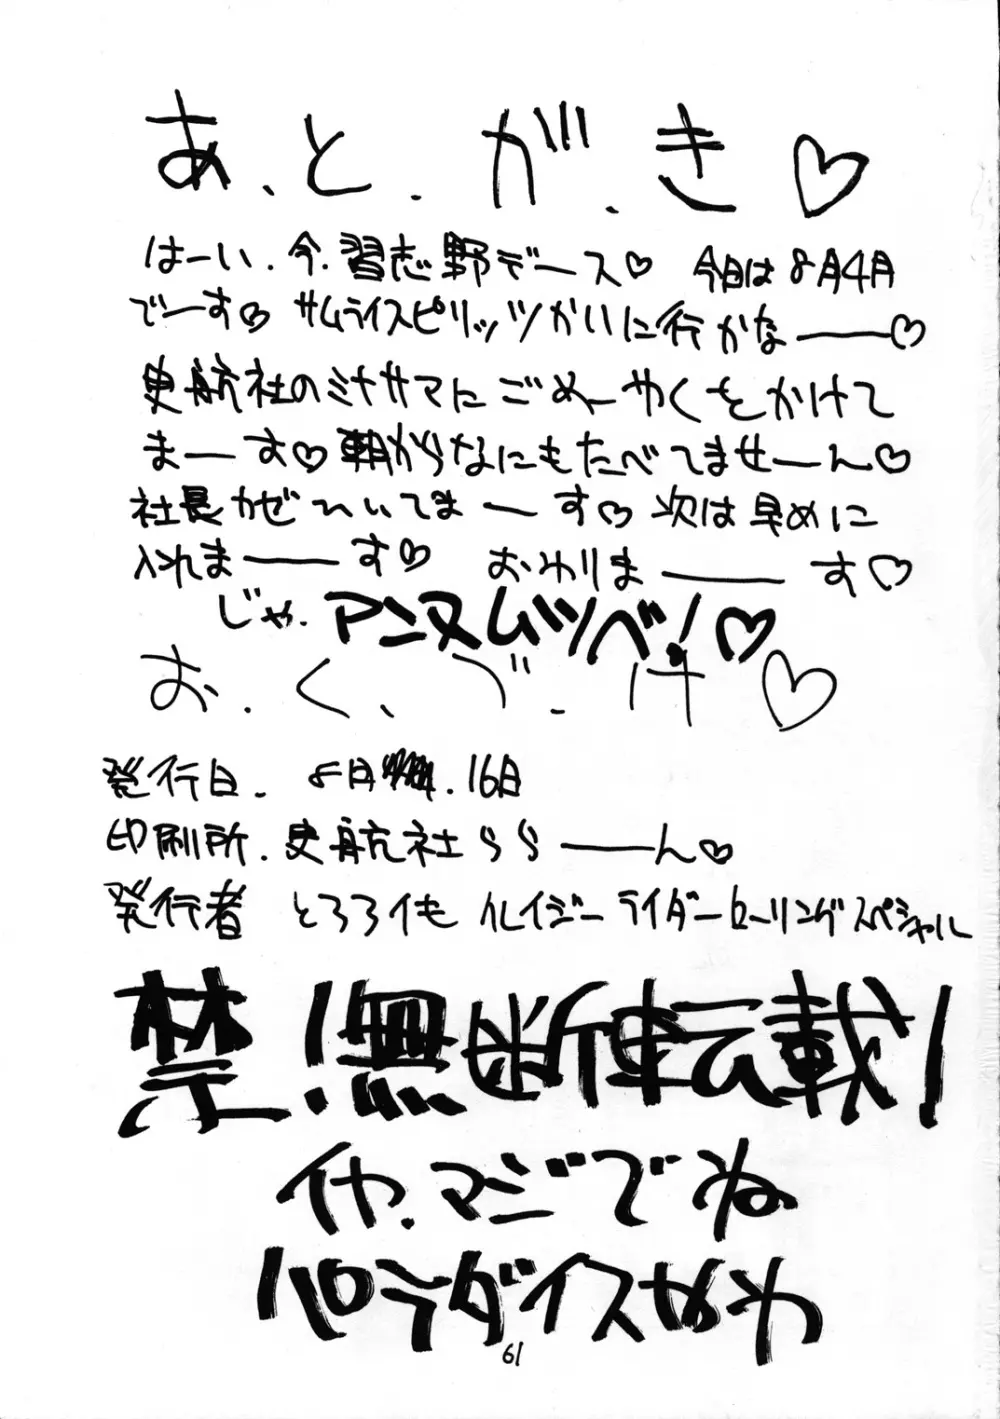 あ.と.が.き♡
はーい.今.習志野デース♡ 今日は8月4日
でーす♡ サムライスピリッツかいに行かなー♡
史航社のミナサマにごめーわくをかけて
まーす♡ 朝からなにもたべてませーん♡
社長かぜひいてまーす♡ 次は早めに
入れまーす♡ おわりまーす♡
じゃ.アンヌムツベ!♡
お.く.づ.け♡
発行日. 8月 .16日
印刷所.史航社ららーん♡
発行者 とろろイも クレイジーライダーローリングスペシャル
禁!無断転載!
イヤ.マジでね
パラダイスやわ
61